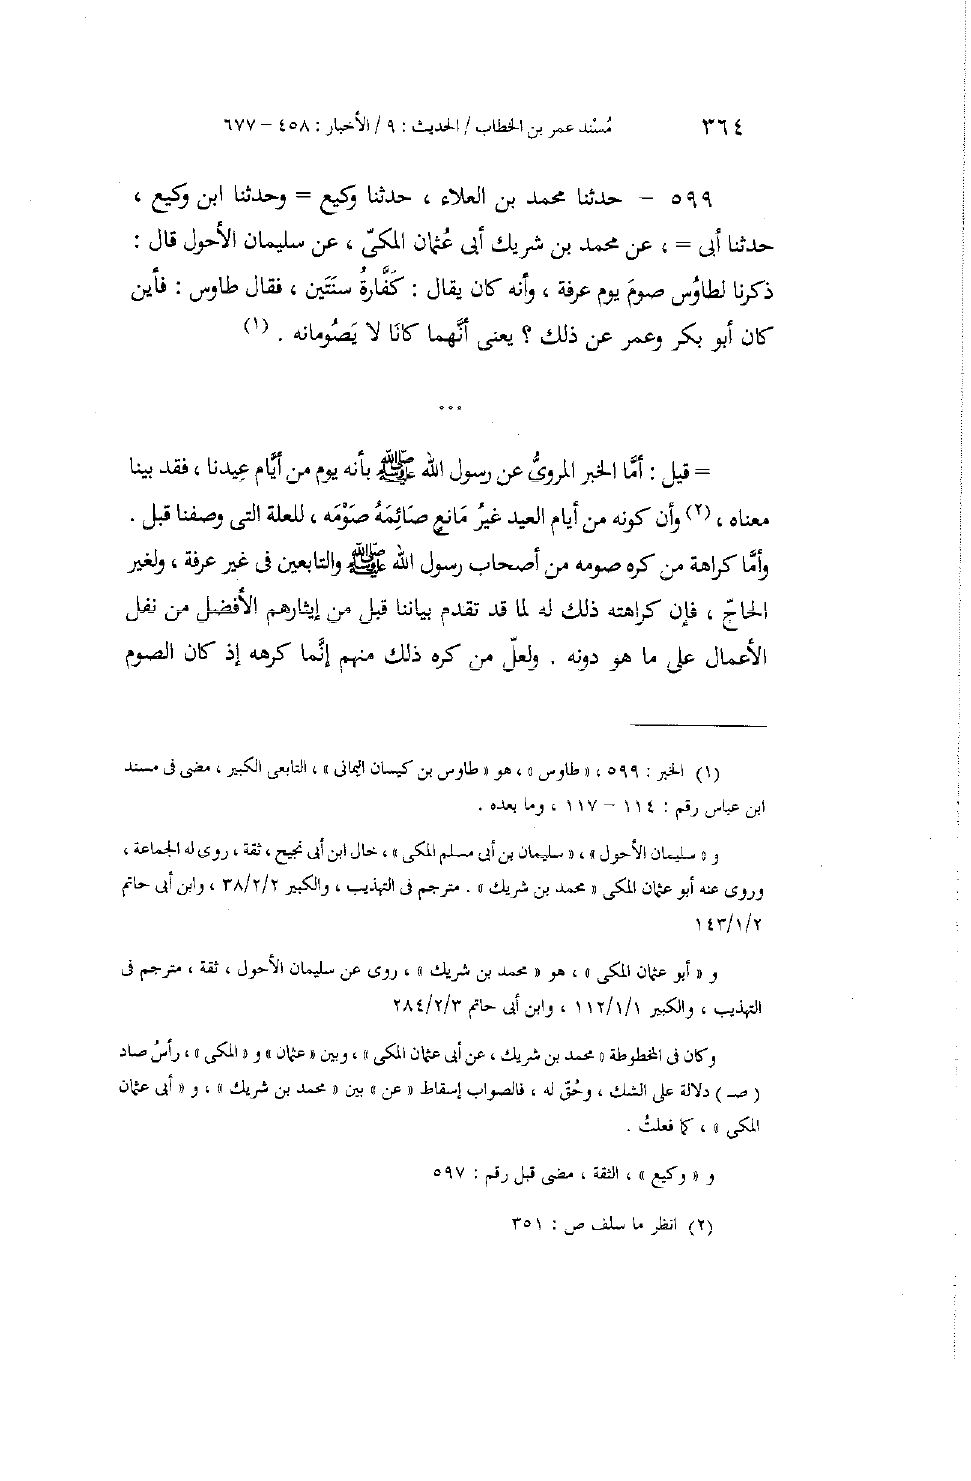 ٣٦٤ مُسْند عمر بن الخطاب / الحديث : ٩ / الأخبار : ٤٥٨ – ٦٧٧
٥٩٩ – حدثنا محمد بن العلاء ، حدثنا وكيع = وحدثنا ابن وكيع ،
حدثنا أبى = ، عن محمد بن شريك أبى عُثمان المكىّ ، عن سليمان الأحول قال :
ذكرنا لطاوُس صومَ يوم عرفة ، وأنه كان يقال : كَفَّارةُ سنَتَين ، فقال طاوس : فأين
كان أبو بكر وعمر عن ذلك ؟ يعنى أنَّهما كانَا لا يَصُومانه . (١)
°°°
= قيل : أمَّا الخبر المروىُّ عن رسول الله ﷺ بأنه يوم من أيَّام عِيدنا ، فقد بينا
معناه ، (٢) وأن كونه من أيام العيد غيرُ مَانعٍ صَائِمَهُ صَوْمَه ، للعلة التى وصفنا قبل .
وأمَّا كراهة من كره صومه من أصحاب رسول الله ﷺ والتابعين فى غير عرفة ، ولغير
الحاجّ ، فإن كراهته ذلك له لما قد تقدم بياننا قبل من إيثارهم الأفضل من نفل
الأعمال على ما هو دونه . ولعلّ من كره ذلك منهم إنَّما كرهه إذ كان الصوم
(١) الخبر : ٥٩٩ ، « طاوس » ، هو « طاوس بن كيسان اليمانى » ، التابعى الكبير ، مضى فى مسند
ابن عباس رقم : ١١٤ – ١١٧ ، وما بعده .
و « سليمان الأحول » ، « سليمان بن أبى مسلم المكى » ، خال ابن أبى نجيح ، ثقة ، روى له الجماعة ،
وروى عنه أبو عثمان المكى « محمد بن شريك » . مترجم فى التهذيب ، والكبير ٣٨/٢/٢ ، وابن أبى حاتم
١٤٣/١/٢
و « أبو عثمان المكى » ، هو « محمد بن شريك » ، روى عن سليمان الأحول ، ثقة ، مترجم فى
التهذيب ، والكبير ١١٢/١/١ ، وابن أبى حاتم ٢٨٤/٢/٣
وكان فى المخطوطة « محمد بن شريك ، عن أبى عثمان المكى » ، وبين « عثمان » و « المكى » ، رأسُ صاد
( صـ ) دلالة على الشك ، وحُقّ له ، فالصواب إسقاط « عن » بين « محمد بن شريك » ، و « أبى عثمان
المكى » ، كما فعلتُ .
و « وكيع » ، الثقة ، مضى قبل رقم : ٥٩٧
(٢) انظر ما سلف ص : ٣٥١